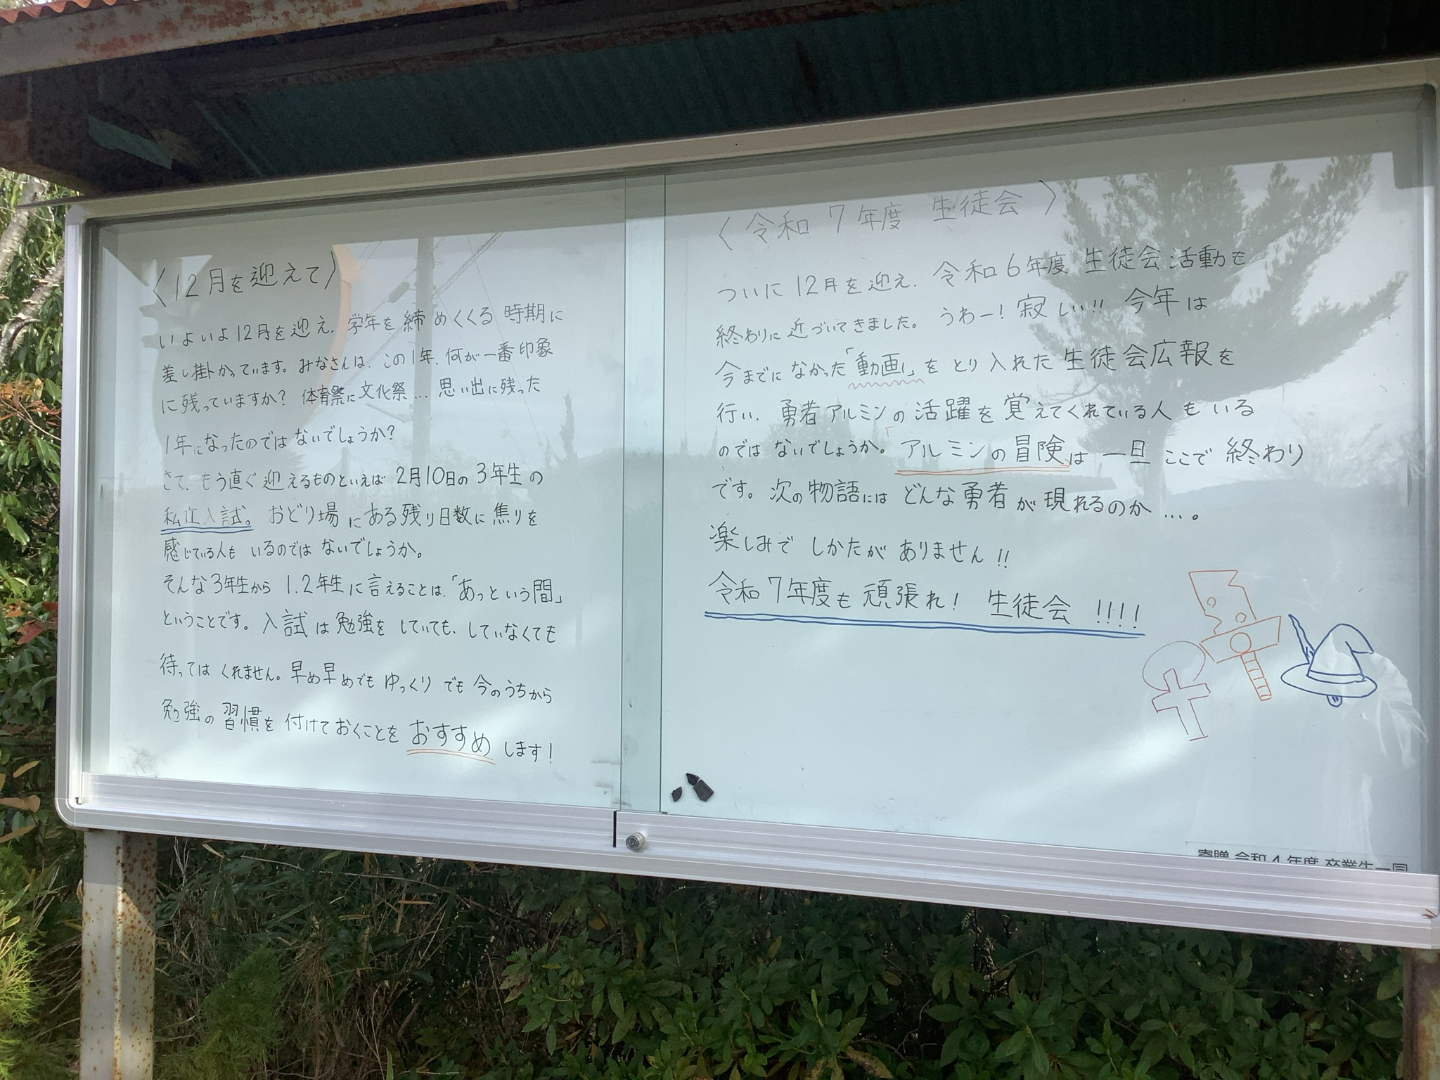 〈12月を迎えて〉
いよいよ12月を迎え、学年を締めくくる時期に
差し掛かっています。みなさんは、この1年、何が一番印象
に残っていますか？体育祭に文化祭…思い出に残った
1年になったのではないでしょうか？
さて、もう直ぐ迎えるものといえば2月10日の3年生の
私立入試。おどり場にある残り日数に焦りを
感じている人もいるのではないでしょうか。
そんな3年生から1.2年生に言えることは、「あっという間」
ということです。入試は勉強をしていても、していなくても
待ってはくれません。早め早めでもゆっくりでも今のうちから
勉強の習慣を付けておくことをおすすめします！
〈令和7年度 生徒会〉
ついに12月を迎え、令和6年度 生徒会活動も
終わりに近づいてきました。うわー！寂しい!! 今年は
今までになかった「動画」をとり入れた生徒会広報を
行い、勇者アルミンの活躍を覚えてくれている人もいる
のではないでしょうか。「アルミンの冒険は一旦ここで終わり
です。次の物語にはどんな勇者が現れるのか…。
楽しみでしかたがありません!!
令和7年度も頑張れ！生徒会!!!!
寄贈 令和4年度 卒業生一同